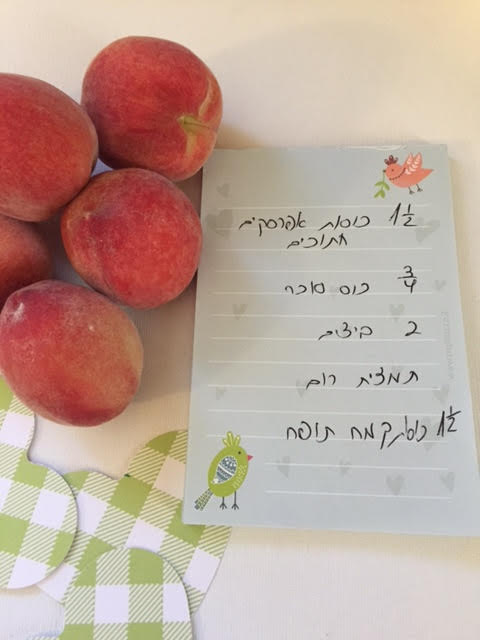 1½ כוסות אפרסקים
חתוכים
¾ כוס סוכר
2 ביצים
תמצית רום
1½ כוסות קמח תופח